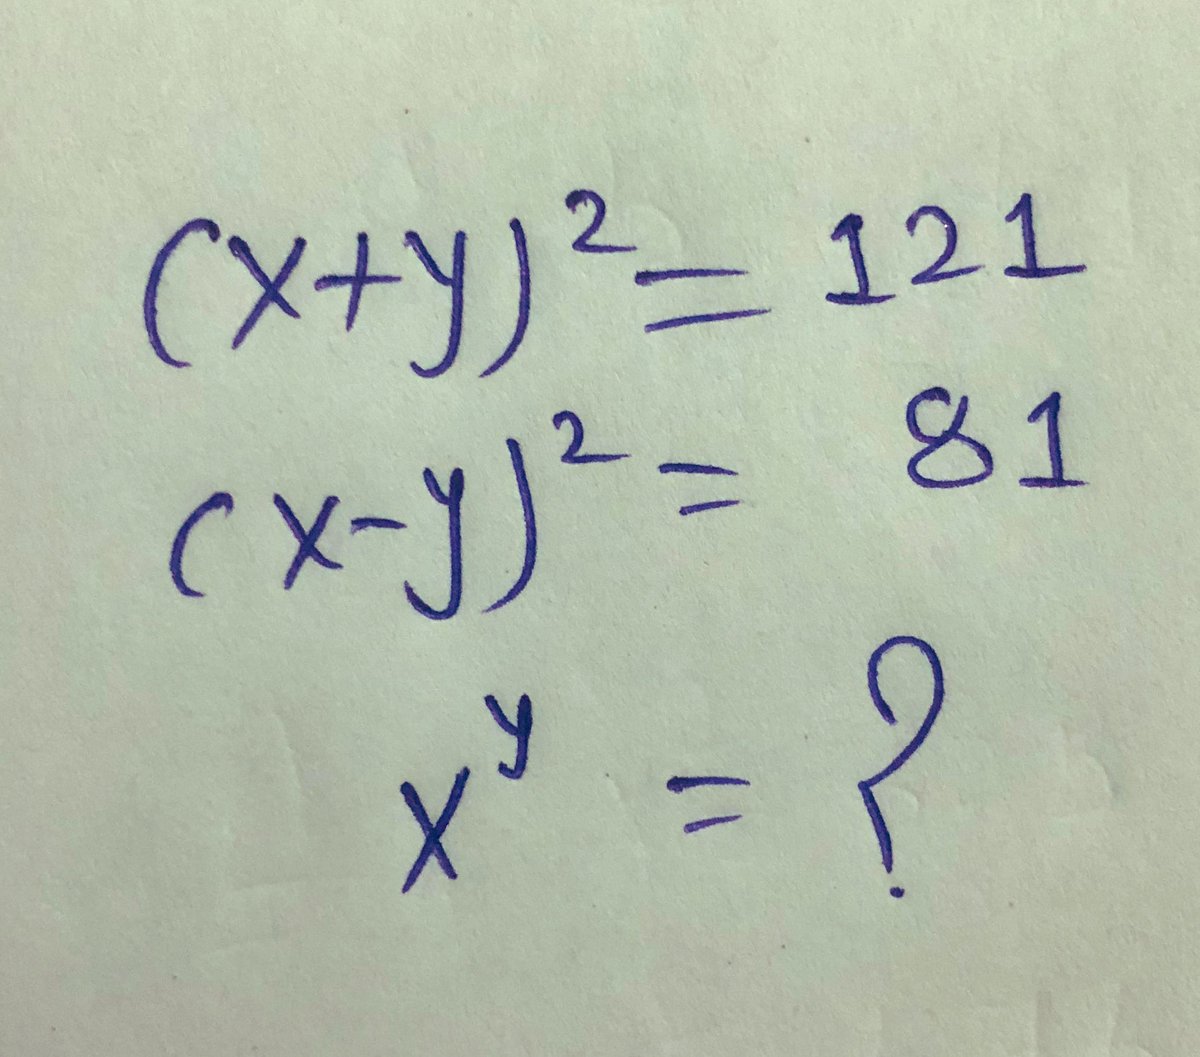 (x+y)² = 121
(x-y)² = 81
xʸ = ?